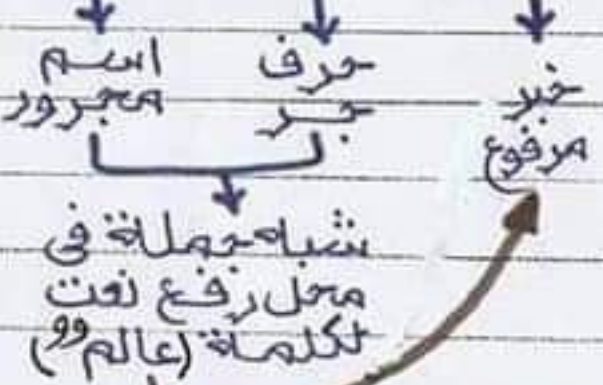 خبر
مرفوع
حرف
جر
اسم
مجرور
شبه جملة في
محل رفع نعت
لكلمة (عالمٌ)